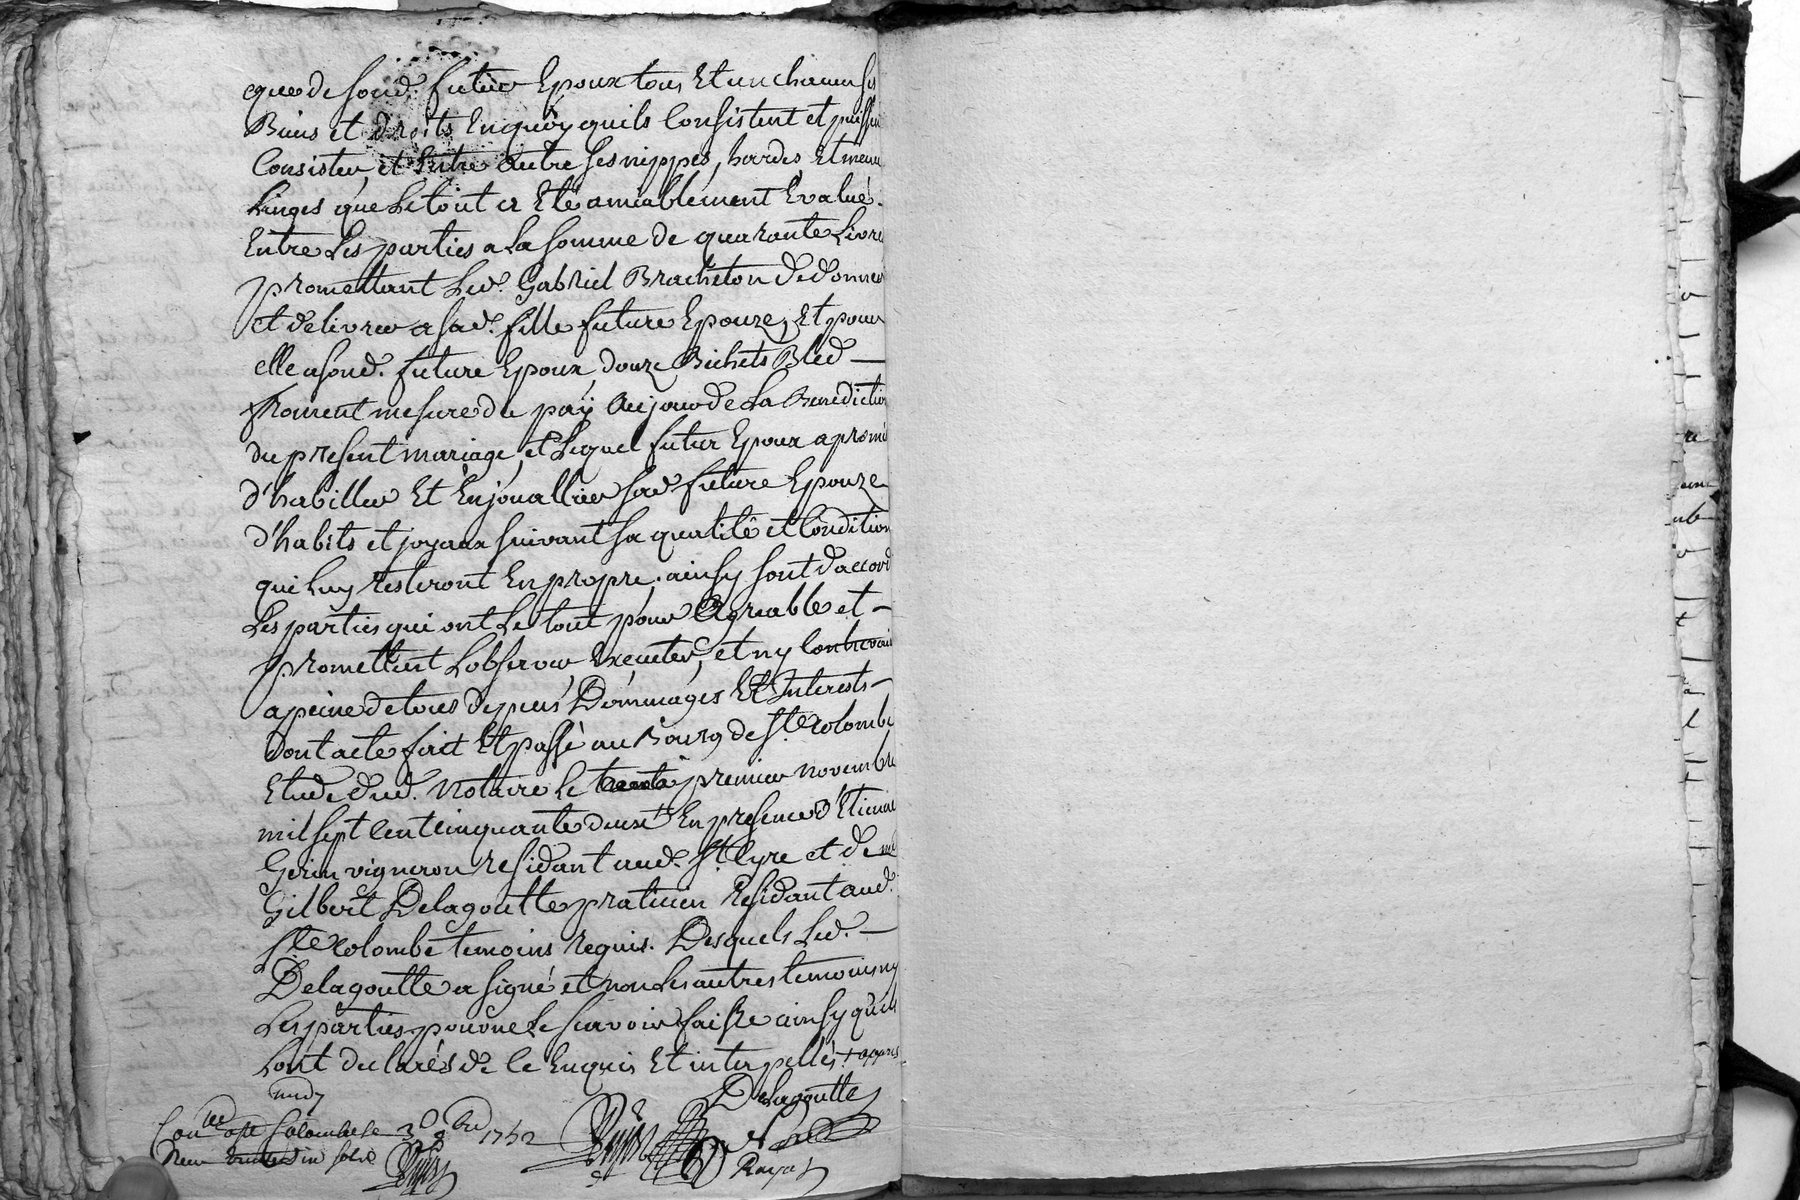 que de soud. futur Epoux tous Et un chacun ses
Biens et droits Enquöy quils Consistent et puissent
Consister, et Entre autre ses nippes, hardes Et menu
Linges que Le tout a Eté amiablement Evalué.
Entre Les parties a La somme de quarante Livres
promettant Led. Gabriel Bracheton de donner
et delivrer a sad. fille future Epouze, Et pour
elle a soud. future Epoux douze Bichets Bled —
froment mesure du païj Au jour de La Benediction
du present mariage, et Lequel futur Epoux a promis
d'habiller Et Enjouallier sad. future Epouze
d'habits et joyaux suivant sa qualité et Condition
qui Luy resteront En propre. ainsy sont d'accord
Les parties qui ont Le tout pour Agreable et —
promettent Lobserver Executer, et ny Contrevenir
a peine de tous depens, Dommages Et Interests —
dont acte fait Et passé au Bourg de Ste Colombe
Etude dud. Notaire Le premier novembre
mil sept Cent cinquante deux En presence d'Etienne
Gerin vigneron residant aud. St Cyre et de
Gilbert Delagoutte praticien Residant aud.
Ste Colombe temoins requis. Desquels Led. —
Delagoutte a signé et non Les autres temoins ny
Les parties pour ne Le scavoir faire ainsy qu'ils
Lont declarés de Ce Enquis Et interpellés + appres
midy
Delagoutte
Conlle a Ste Colombe le 3e 9bre 1752
Reçu